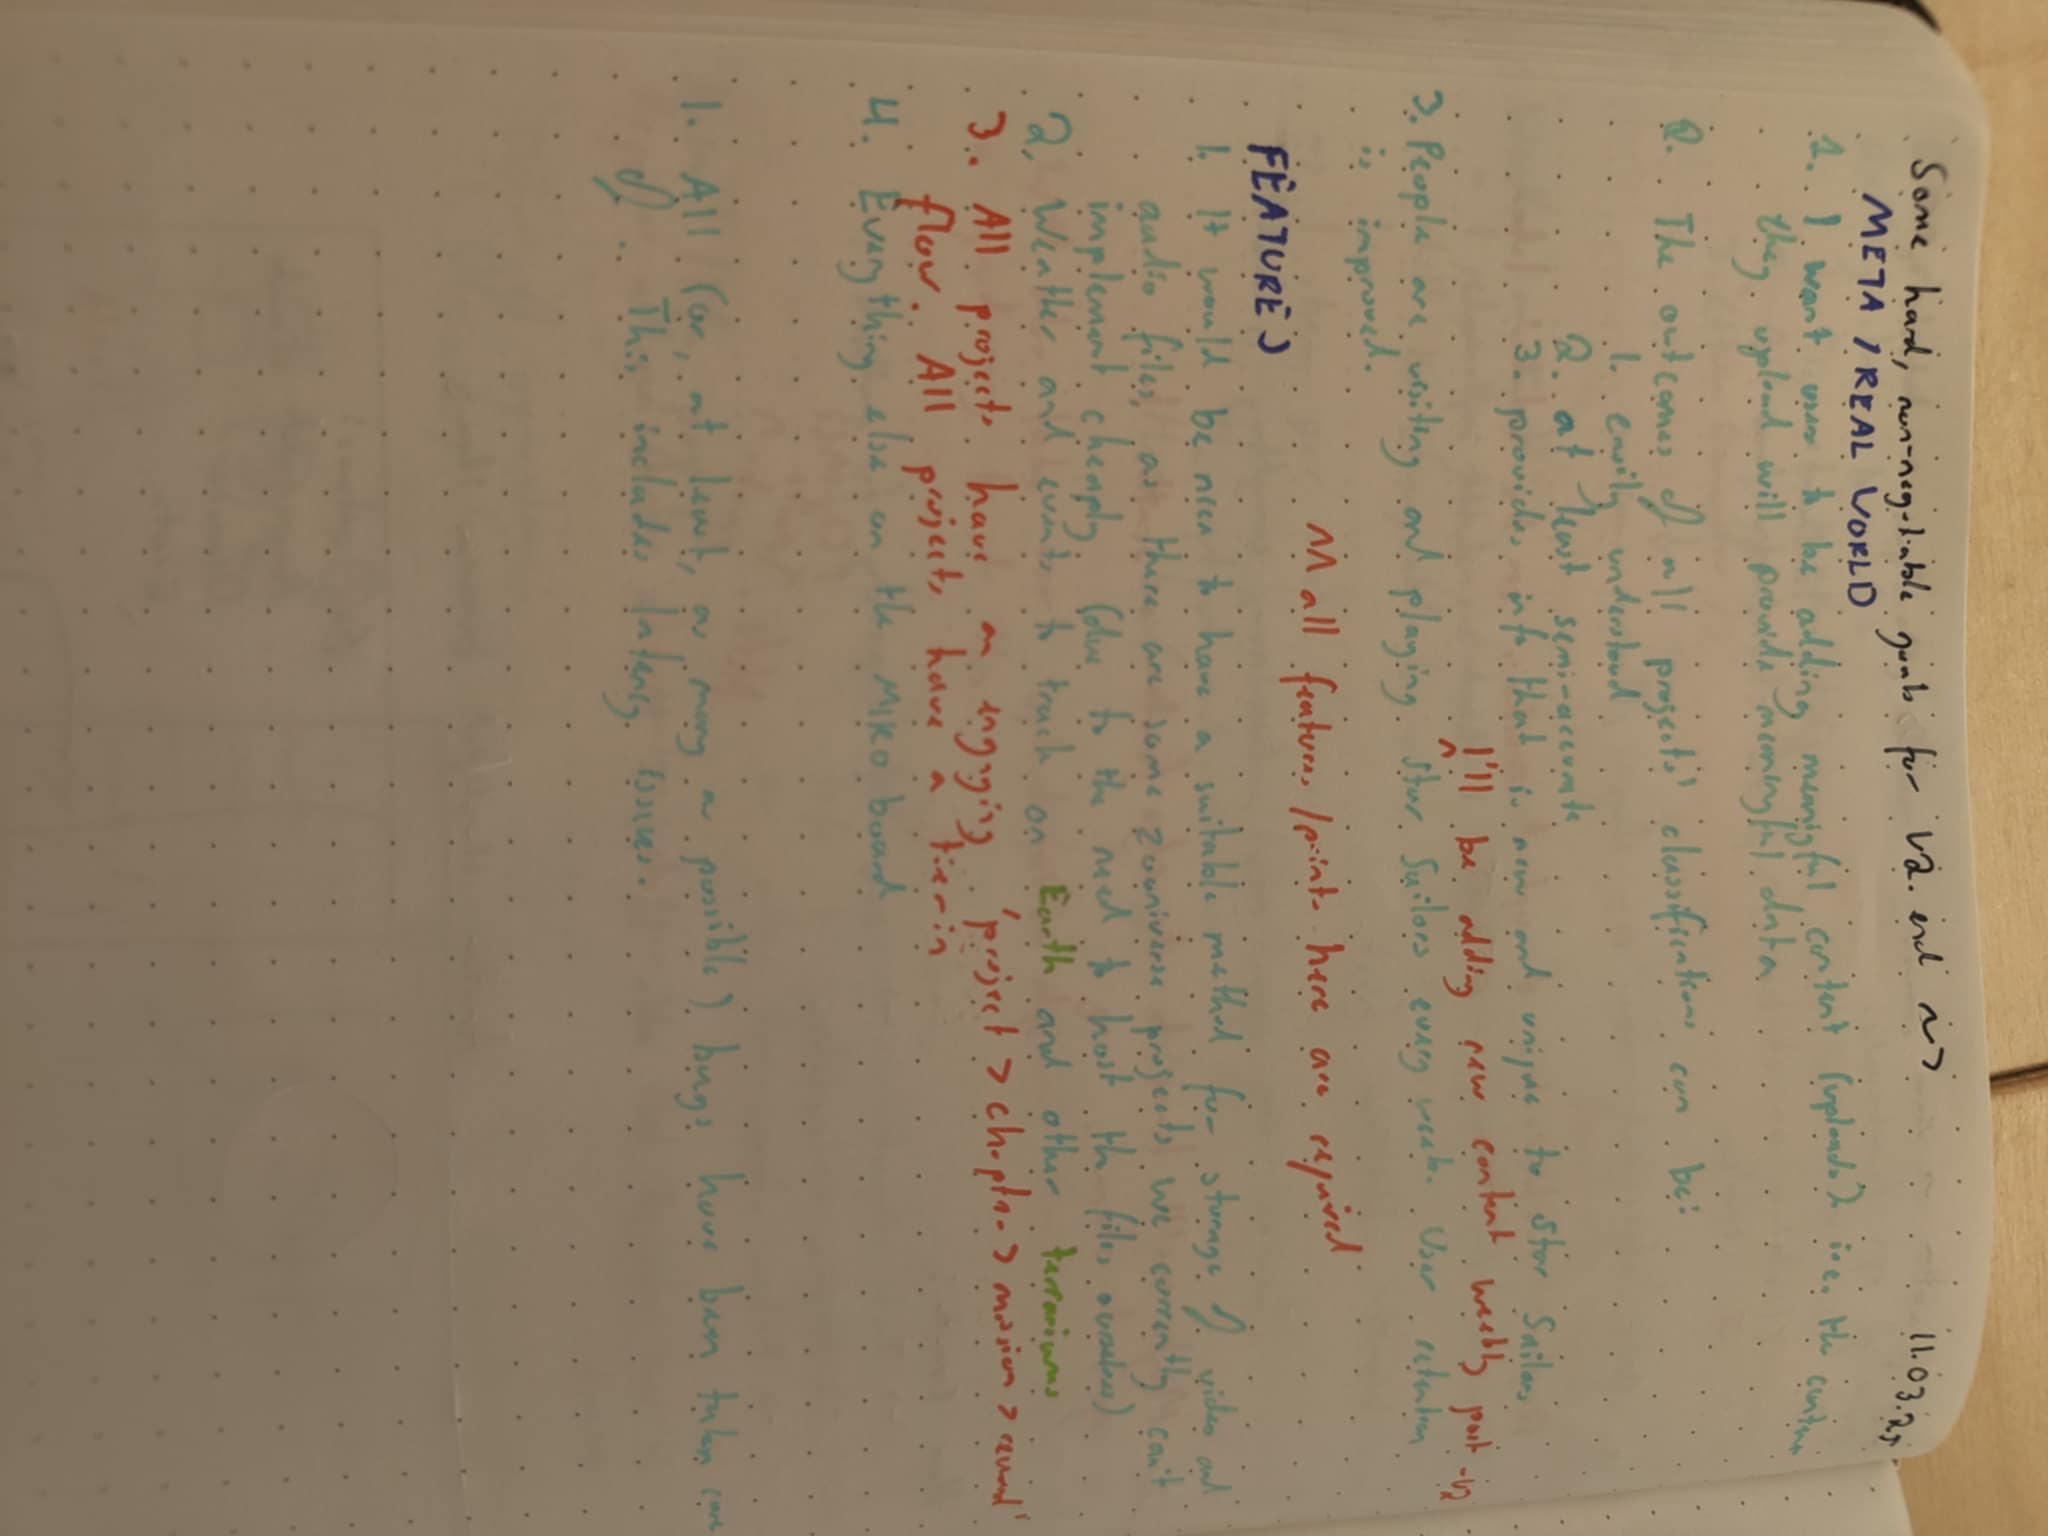 Some hard, non-negotiable goals for V2. end ~> 11.03.25
META / REAL WORLD
1. I want users to be adding meaningful content (uploads) i.e. the content
they upload will provide meaningful data
2. The outcomes of all projects' classifications can be:
1. easily understood
2. at least semi-accurate
3. provides info that is new and unique to Star Sailors
^ I'll be adding new content weekly post-V2
3. People are visiting and playing Star Sailors every week. User retention
is improved.
~~ all features/points here are required
FEATURES
1. It would be nice to have a suitable method for storage of video and
audio files, as there are some zooniverse projects we currently can't
implement cheaply (due to the need to host the files ourselves)
2. Weather and events to track on Earth and other terrariums
3. All projects have an engaging 'project > chapter > mission > reward'
flow. All projects have a tie-in
4. Everything else on the MIRO board
1. All (or, at least, as many as possible) bugs have been taken care
of. This includes Integ. issues.